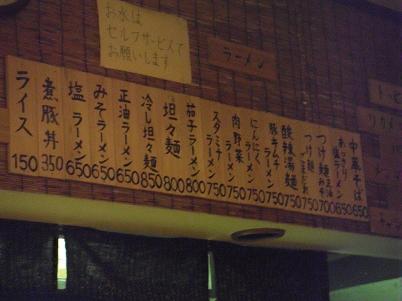 お水は
セルフサービスで
お願いします
ラーメン
中華そば 650
あっさり塩ラーメン 650
つけ麺 700
つけ麺 750
酸辣湯麺 750
豚キムチラーメン 750
にんにくラーメン 750
肉野菜ラーメン 750
スタミナラーメン 750
茄子ラーメン 800
坦々麺 800
冷し坦々麺 850
正油ラーメン 650
みそラーメン 650
塩ラーメン 650
煮豚丼 350
ライス 150